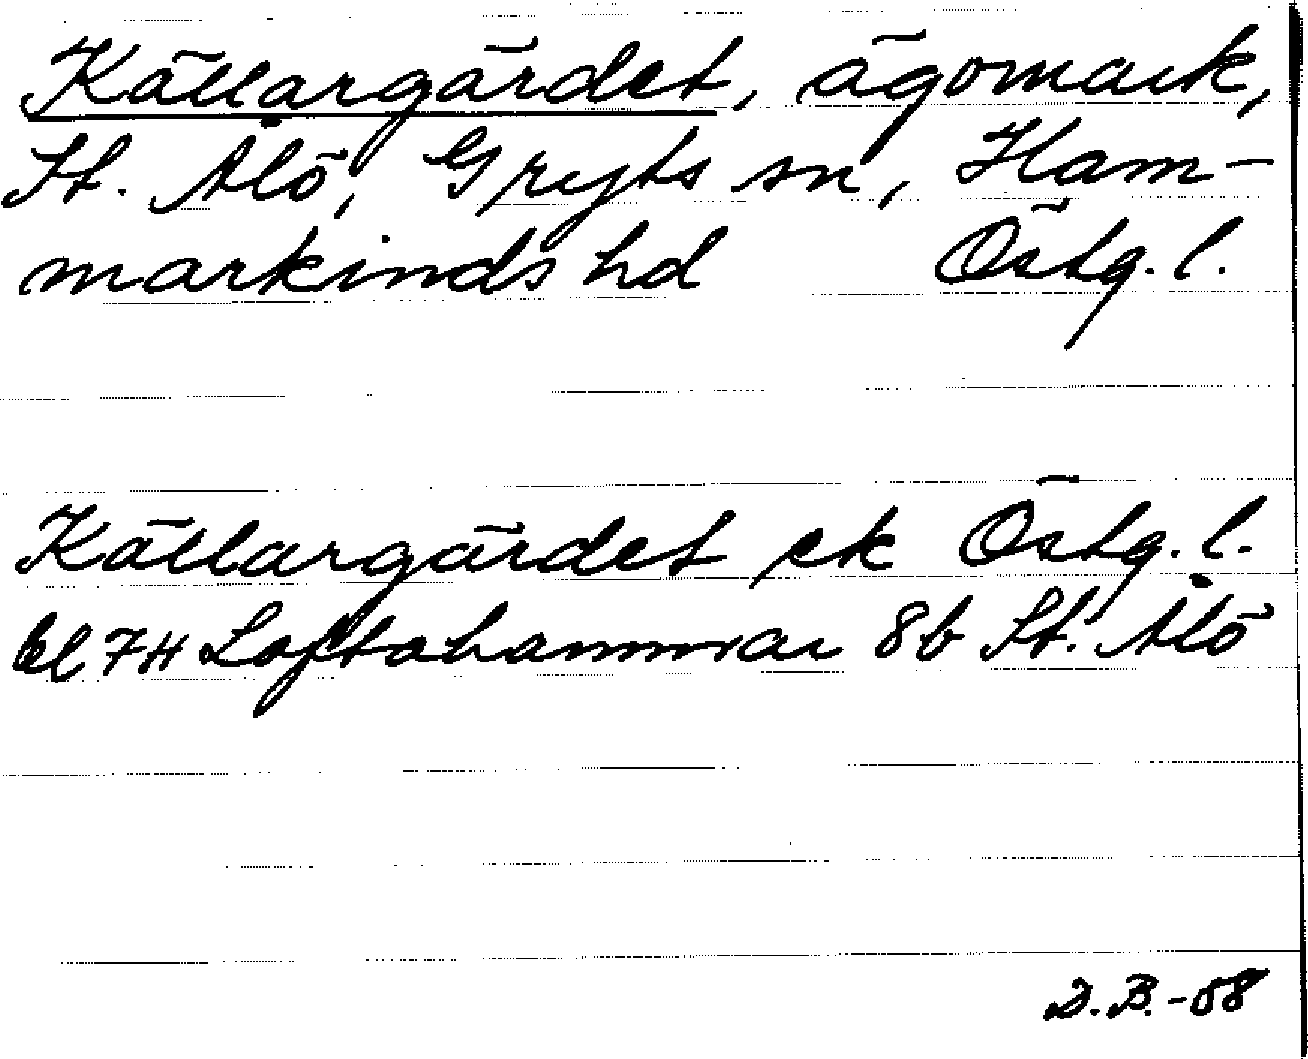 Källargärdet, ägomark,
St. Ålö, Gryts sn, Ham-
markinds hd Östg. l.
Källargärdet ek Östg. l.
bl 7H Loftahammar 8b St. Ålö
D.B.-58